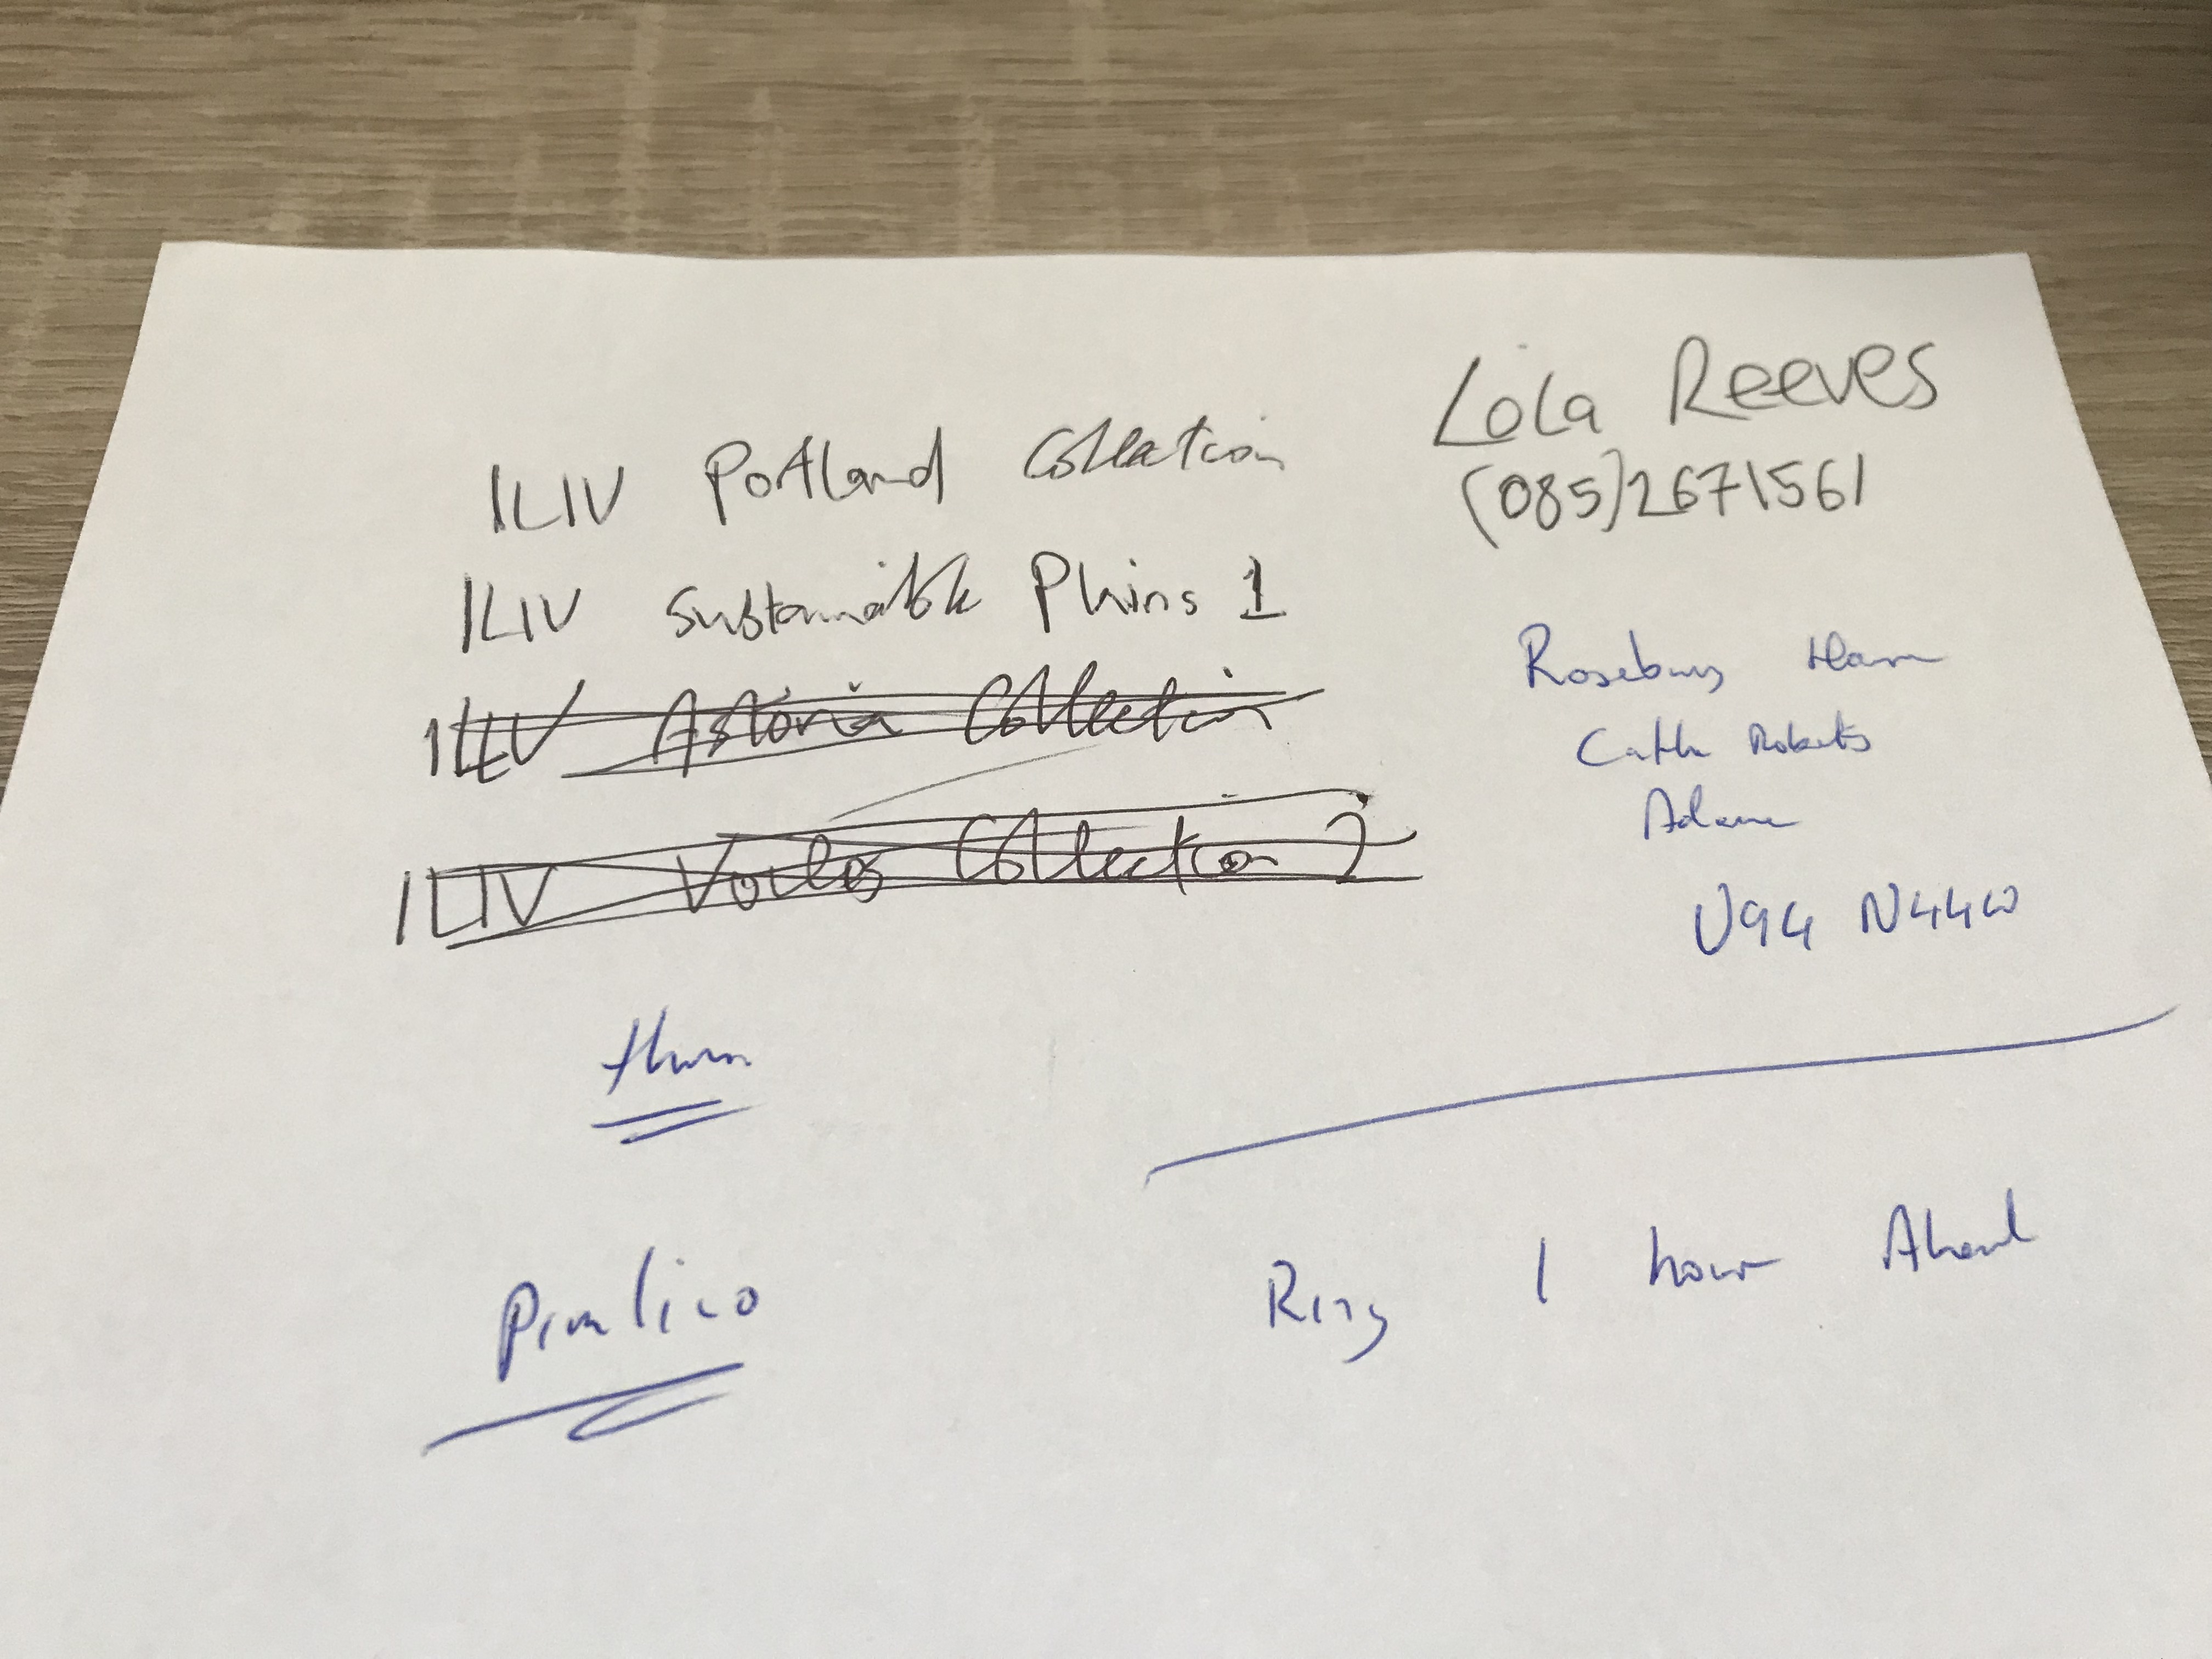 Lola Reeves
(085)2671561
ILIV Portland Collection
ILIV Sustainable Plains 1
ILIV Astoria Collection
ILIV Voiles Collection 2
Rosebury
Roberts
Adam
U94 N44W
Pimlico
Ring 1 hour Ahead